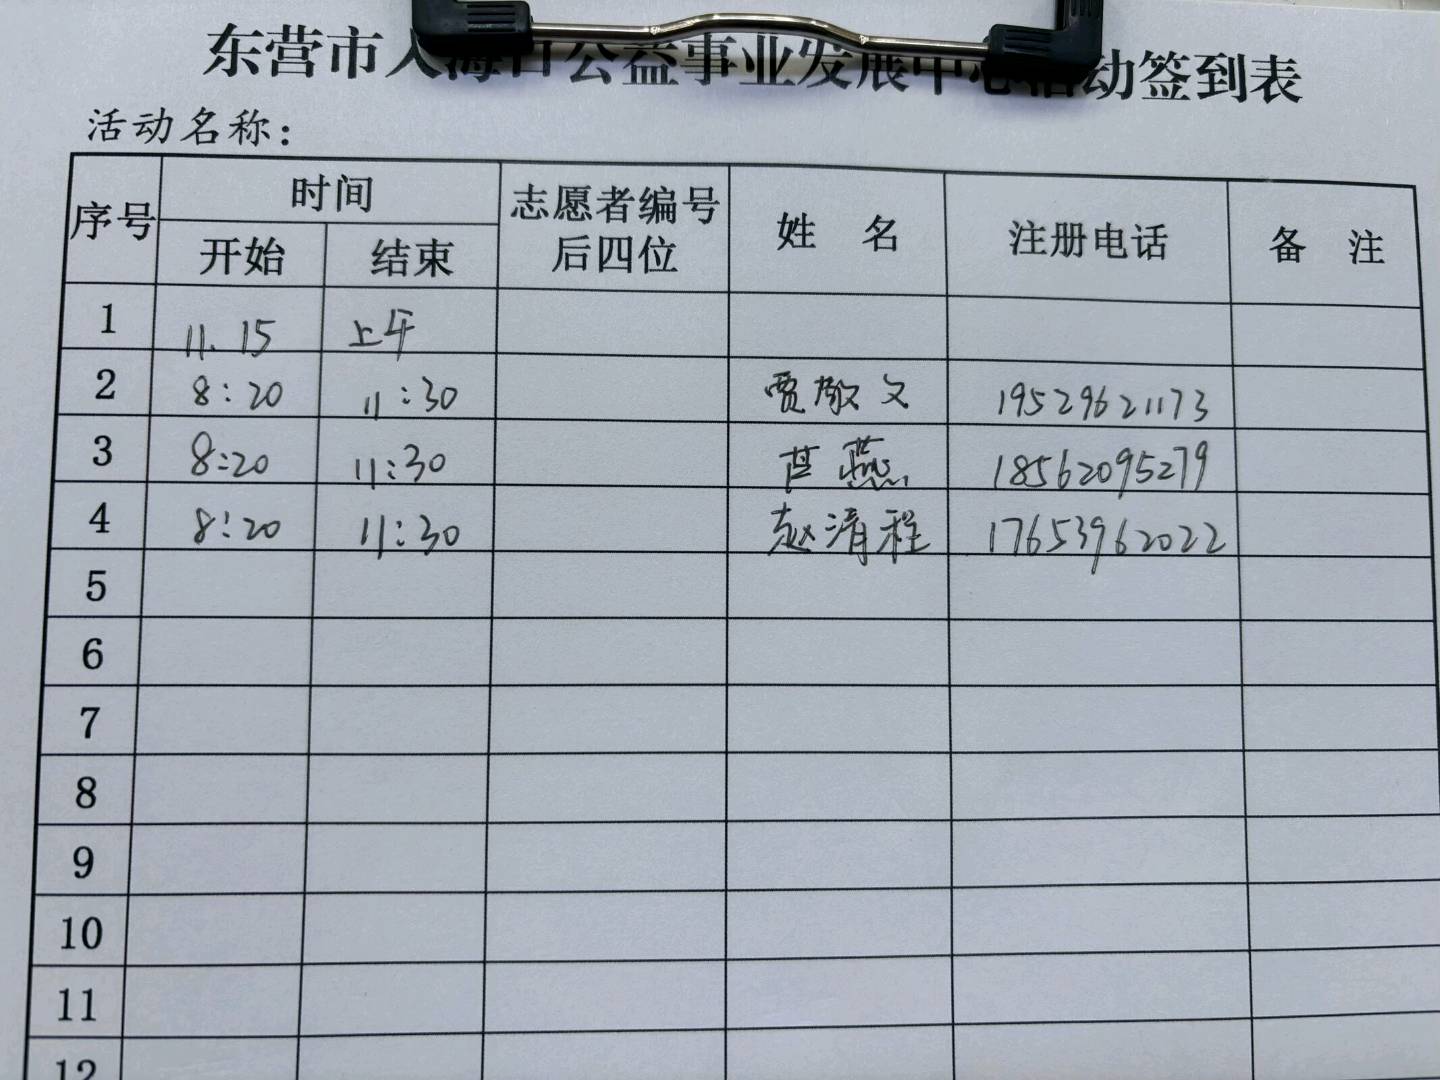 东营市入海口公益事业发展中心活动签到表
活动名称：
序号 时间 志愿者编号后四位 姓 名 注册电话 备 注
开始 结束
1 11.15 上午
2 8:20 11:30 贾敬文 19529621173
3 8:20 11:30 燕 18562095279
4 8:20 11:30 赵清程 17653962022
5
6
7
8
9
10
11
12